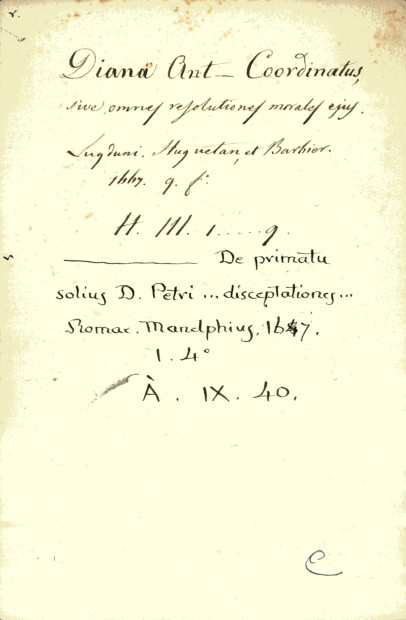 Diana Ant— Coordinatus,
sive omnes resolutiones morales ejus.
Lugduni. Huguetan, et Barbier.
1667. 9. f°.
H. III. 1.....9.
———— De primatu
solius D. Petri ... disceptationes ...
Romae. Manelphius, 1647.
1. 4°
À. IX. 40.
C